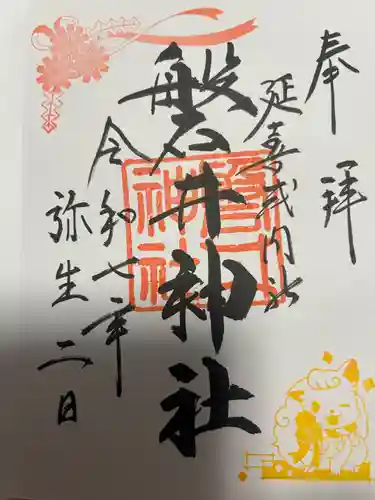 奉拝
延喜式内社
磐井神社
令和七年
弥生二日
磐井神社